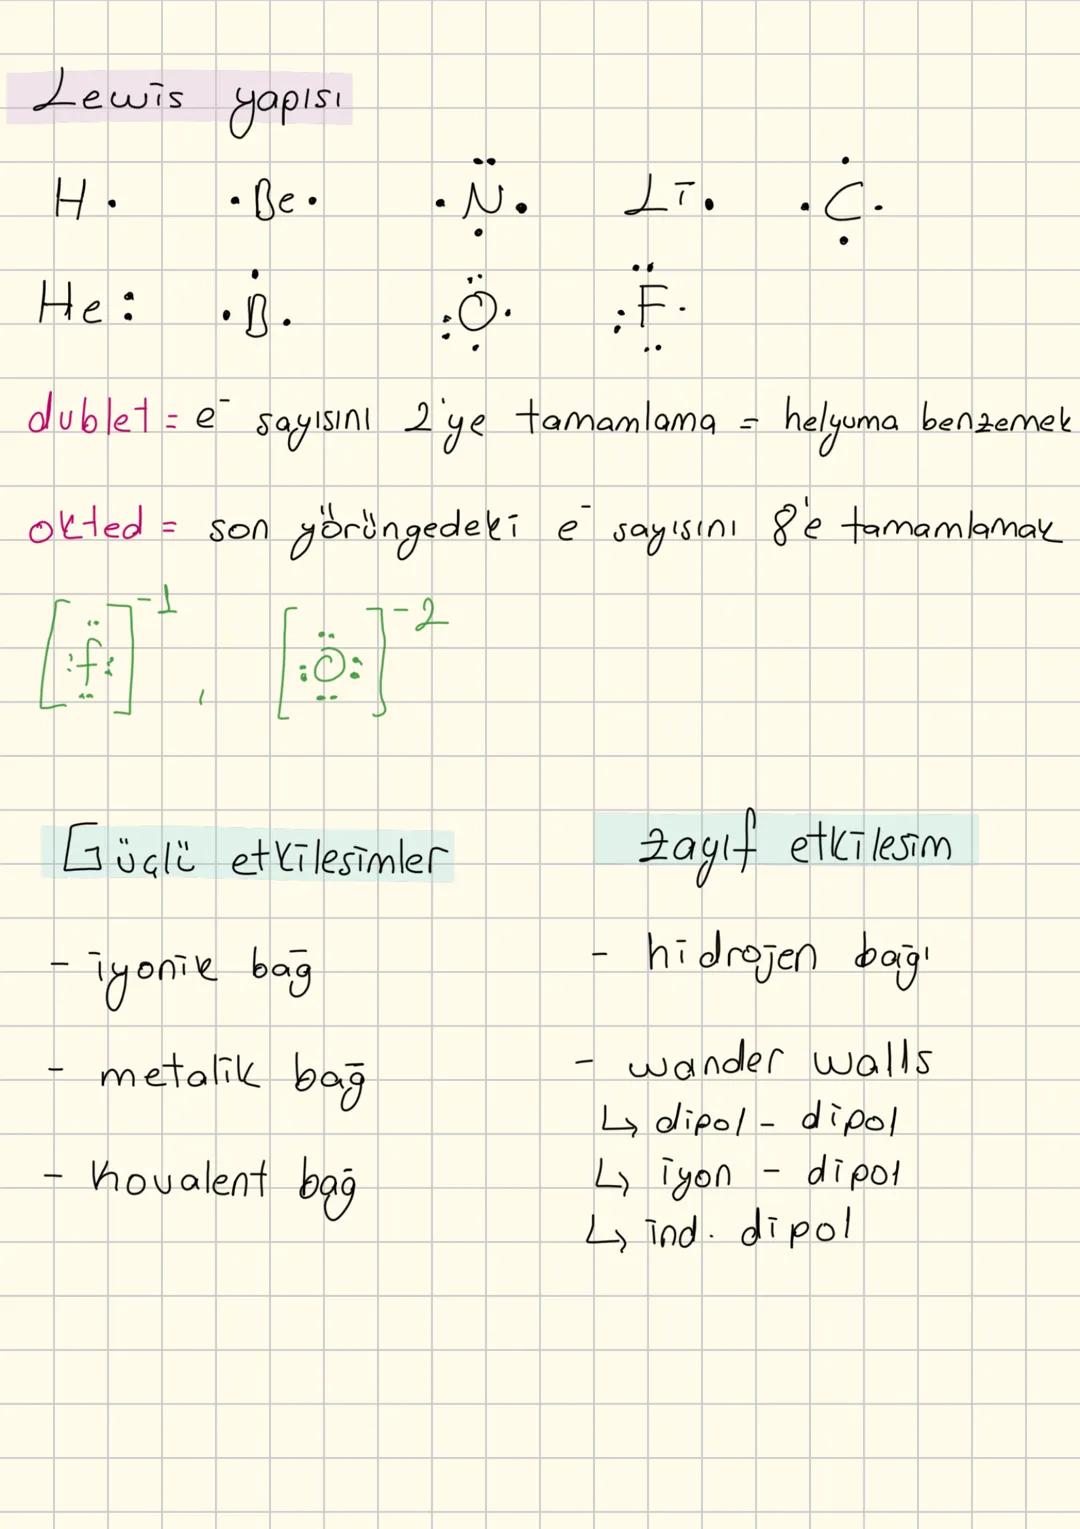 Lewis yapısı
H· ·Be· ·N̈· Li· ·Ċ·
He: ·Ḃ· :Ö· :F̈·
dublet = e⁻ sayısını 2'ye tamamlama = helyuma benzemek
okted = son yörüngedeki e⁻ sayısını 8'e tamamlamak
[:f̈:]⁻¹ , [:Ö:]⁻²
Güçlü etkilesimler
- iyonik bağ
- metalik bağ
- kovalent bağ
zayıf etkilesim
- hidrojen bağı
- wander walls
↳ dipol - dipol
↳ iyon - dipol
↳ ind. dipol